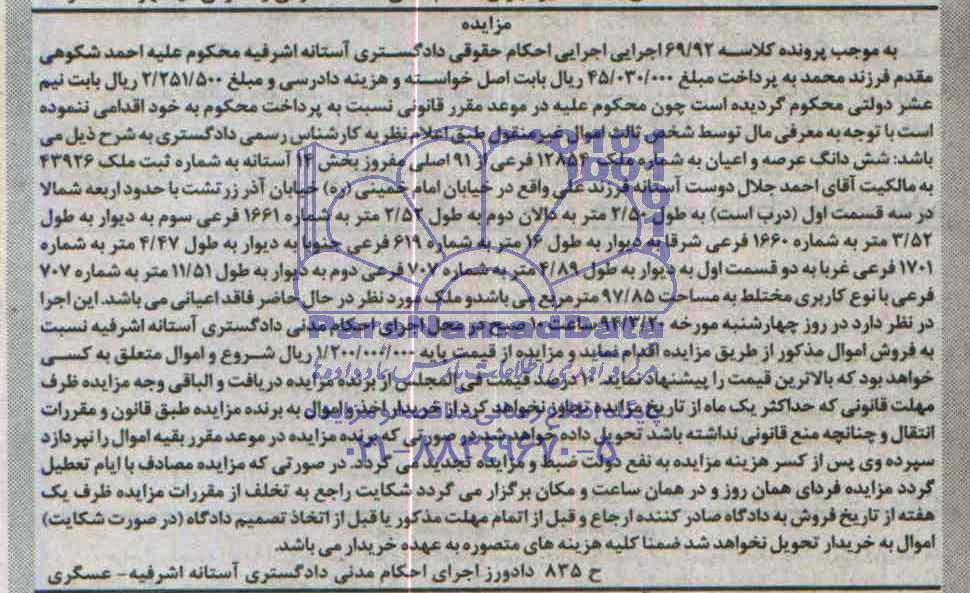 مزایده
به موجب پرونده کلاسه ۶۹/۹۲ اجرایی اجرایی احکام حقوقی دادگستری آستانه اشرفیه محکوم علیه احمد شکوهی
مقدم فرزند محمد به پرداخت مبلغ ۴۵/۰۳۰/۰۰۰ ریال بابت اصل خواسته و هزینه دادرسی و مبلغ ۲/۲۵۱/۵۰۰ ریال بابت نیم
عشر دولتی محکوم گردیده است چون محکوم علیه در موعد مقرر قانونی نسبت به پرداخت محکوم به خود اقدامی ننموده
است با توجه به معرفی مال توسط شخص ثالث اموال غیر منقول طبق اعلام نظریه کارشناس رسمی دادگستری به شرح ذیل می
باشد: شش دانگ عرصه و اعیان به شماره ملک ۱۲۸۵۴ فرعی از ۹۱ اصلی مفروز بخش ۱۴ آستانه به شماره ثبت ملک ۴۳۹۲۶
به مالکیت آقای احمد جلال دوست آستانه فرزند علی واقع در خیابان امام خمینی (ره) خیابان آذر زرتشت با حدود اربعه شمالا
در سه قسمت اول (درب است) به طول ۲/۵۰ متر به دالان دوم به طول ۲/۵۲ متر به شماره ۱۶۶۱ فرعی سوم به دیوار به طول
۳/۵۲ متر به شماره ۱۶۶۰ فرعی شرقا به دیوار به طول ۱۶ متر به شماره ۶۱۹ فرعی جنوبا به دیوار به طول ۴/۴۷ متر به شماره
۱۷۰۱ فرعی غربا به دو قسمت اول به دیوار به طول ۴/۸۹ متر به شماره ۷۰۷ فرعی دوم به دیوار به طول ۱۱/۵۱ متر به شماره ۷۰۷
فرعی با نوع کاربری مختلط به مساحت ۹۷/۸۵ مترمربع می باشدو ملک مورد نظر در حال حاضر فاقد اعیانی می باشد. این اجرا
در نظر دارد در روز چهارشنبه مورخه ۹۴/۳/۲۰ ساعت ۱۰ صبح در محل اجرای احکام مدنی دادگستری آستانه اشرفیه نسبت
به فروش اموال مذکور از طریق مزایده اقدام نماید و مزایده از قیمت پایه ۱/۲۰۰/۰۰۰/۰۰۰ ریال شروع و اموال متعلق به کسی
خواهد بود که بالاترین قیمت را پیشنهاد نماید. ۱۰ درصد قیمت فی المجلس از برنده مزایده دریافت و الباقی وجه مزایده ظرف
مهلت قانونی که حداکثر یک ماه از تاریخ مزایده تجاوز نخواهد کرد از خریدار اخذ و اموال به برنده مزایده طبق قانون و مقررات
انتقال و چنانچه منع قانونی نداشته باشد تحویل داده خواهد شد در صورتی که برنده مزایده در موعد مقرر بقیه اموال را نپردازد
سپرده وی پس از کسر هزینه مزایده به نفع دولت ضبط و مزایده تجدید می گردد. در صورتی که مزایده مصادف با ایام تعطیل
گردد مزایده فردای همان روز و در همان ساعت و مکان برگزار می گردد شکایت راجع به تخلف از مقررات مزایده ظرف یک
هفته از تاریخ فروش به دادگاه صادر کننده ارجاع و قبل از اتمام مهلت مذکور یا قبل از اتخاذ تصمیم دادگاه (در صورت شکایت)
اموال به خریدار تحویل نخواهد شد ضمنا کلیه هزینه های متصوره به عهده خریدار می باشد.
ح ۸۳۵ دادورز اجرای احکام مدنی دادگستری آستانه اشرفیه- عسگری
ParsNamadData
۰۲۱-۸۸۳۴۹۶۷۰-۵